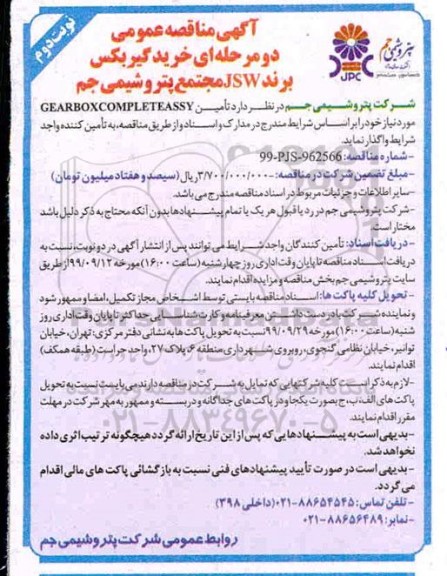 نوبت دوم
آگهی مناقصه عمومی
دو مرحله ای خرید گیربکس
برند JSW مجتمع پتروشیمی جم
پتروشیمی جم
JPC
شرکت پتروشیمی جم در نظر دارد تأمین GEARBOXCOMPLETEASSY
مورد نیاز خود را بر اساس شرایط مندرج در مدارک و اسناد و از طریق مناقصه، به تأمین کننده واجد
شرایط واگذار نماید.
-شماره مناقصه: 99-PJS-962566
-مبلغ تضمین شرکت در مناقصه: ۳/۷۰۰/۰۰۰/۰۰۰ ریال (سیصد و هفتاد میلیون تومان)
-سایر اطلاعات و جزئیات مربوط در اسناد مناقصه مندرج می باشد.
-شرکت پتروشیمی جم در رد یا قبول هر یک یا تمام پیشنهادها بدون آنکه محتاج به ذکر دلیل باشد
مختار است.
-دریافت اسناد: تأمین کنندگان واجد شرایط می توانند پس از انتشار آگهی در دو نوبت، نسبت به
دریافت اسناد مناقصه تا پایان وقت اداری روز چهارشنبه (ساعت ۱۶:۰۰) مورخه ۹۹/۰۹/۱۲ از طریق
سایت پتروشیمی جم بخش مناقصه و مزایده اقدام نمایند.
-تحویل کلیه پاکت ها: اسناد مناقصه بایستی توسط اشخاص مجاز تکمیل، امضا و ممهور شود
و نماینده شرکت با در دست داشتن معرفینامه و کارت شناسایی حداکثر تا پایان وقت اداری روز
شنبه (ساعت ۱۶:۰۰) مورخه ۹۹/۰۹/۲۹ نسبت به تحویل پاکت ها به نشانی دفتر مرکزی: تهران، خیابان
توانیر، خیابان نظامی گنجوی، روبروی شهرداری منطقه ۶، پلاک ۲۷، واحد حراست (طبقه همکف)
اقدام نمایند.
-لازم به ذکر است کلیه شرکتهایی که تمایل به شرکت در مناقصه دارند می بایست نسبت به تحویل
پاکت های الف، ب، ج بصورت یکجا و در پاکت های جداگانه و در بسته و ممهور به مهر شرکت در مهلت
مقرر اقدام نمایند.
-بدیهی است به پیشنهادهایی که پس از این تاریخ ارائه گردد هیچگونه ترتیب اثری داده
نخواهد شد.
-بدیهی است در صورت تأیید پیشنهادهای فنی نسبت به بازگشائی پاکت های مالی اقدام
می گردد.
-تلفن تماس: ۸۸۶۵۴۵۴۵-۰۲۱ (داخلی ۳۹۸)
-نمابر: ۸۸۶۵۶۴۸۹-۰۲۱
روابط عمومی شرکت پتروشیمی جم
۰۲۱-۸۸۳۴۹۶۷۰-۵